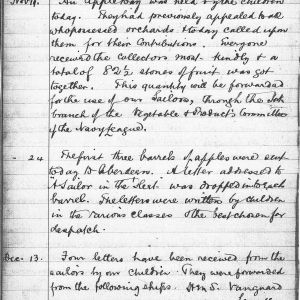 Nov. 11. An Apple day was held by the children
today. They had previously appealed to all
who possessed orchards & today called upon
them for their Contributions. Everyone
received the collectors most kindly & a
total of 82½ stones of fruit was got
together. This quantity will be forwarded
for the use of our Sailors, through the
branch of the Vegetable & Products Committee
of the Navy League.
- 24. The first three barrels of apples were sent
today to Aberdeen. A letter addressed to
"A Sailor in the Fleet" was dropped into each
barrel. The letters were written by children
in the various classes & the best chosen for
despatch.
Dec. 13. Four letters have been received from the
sailors by our children. They were forwarded
from the following ships. H.M.S. Vanguard